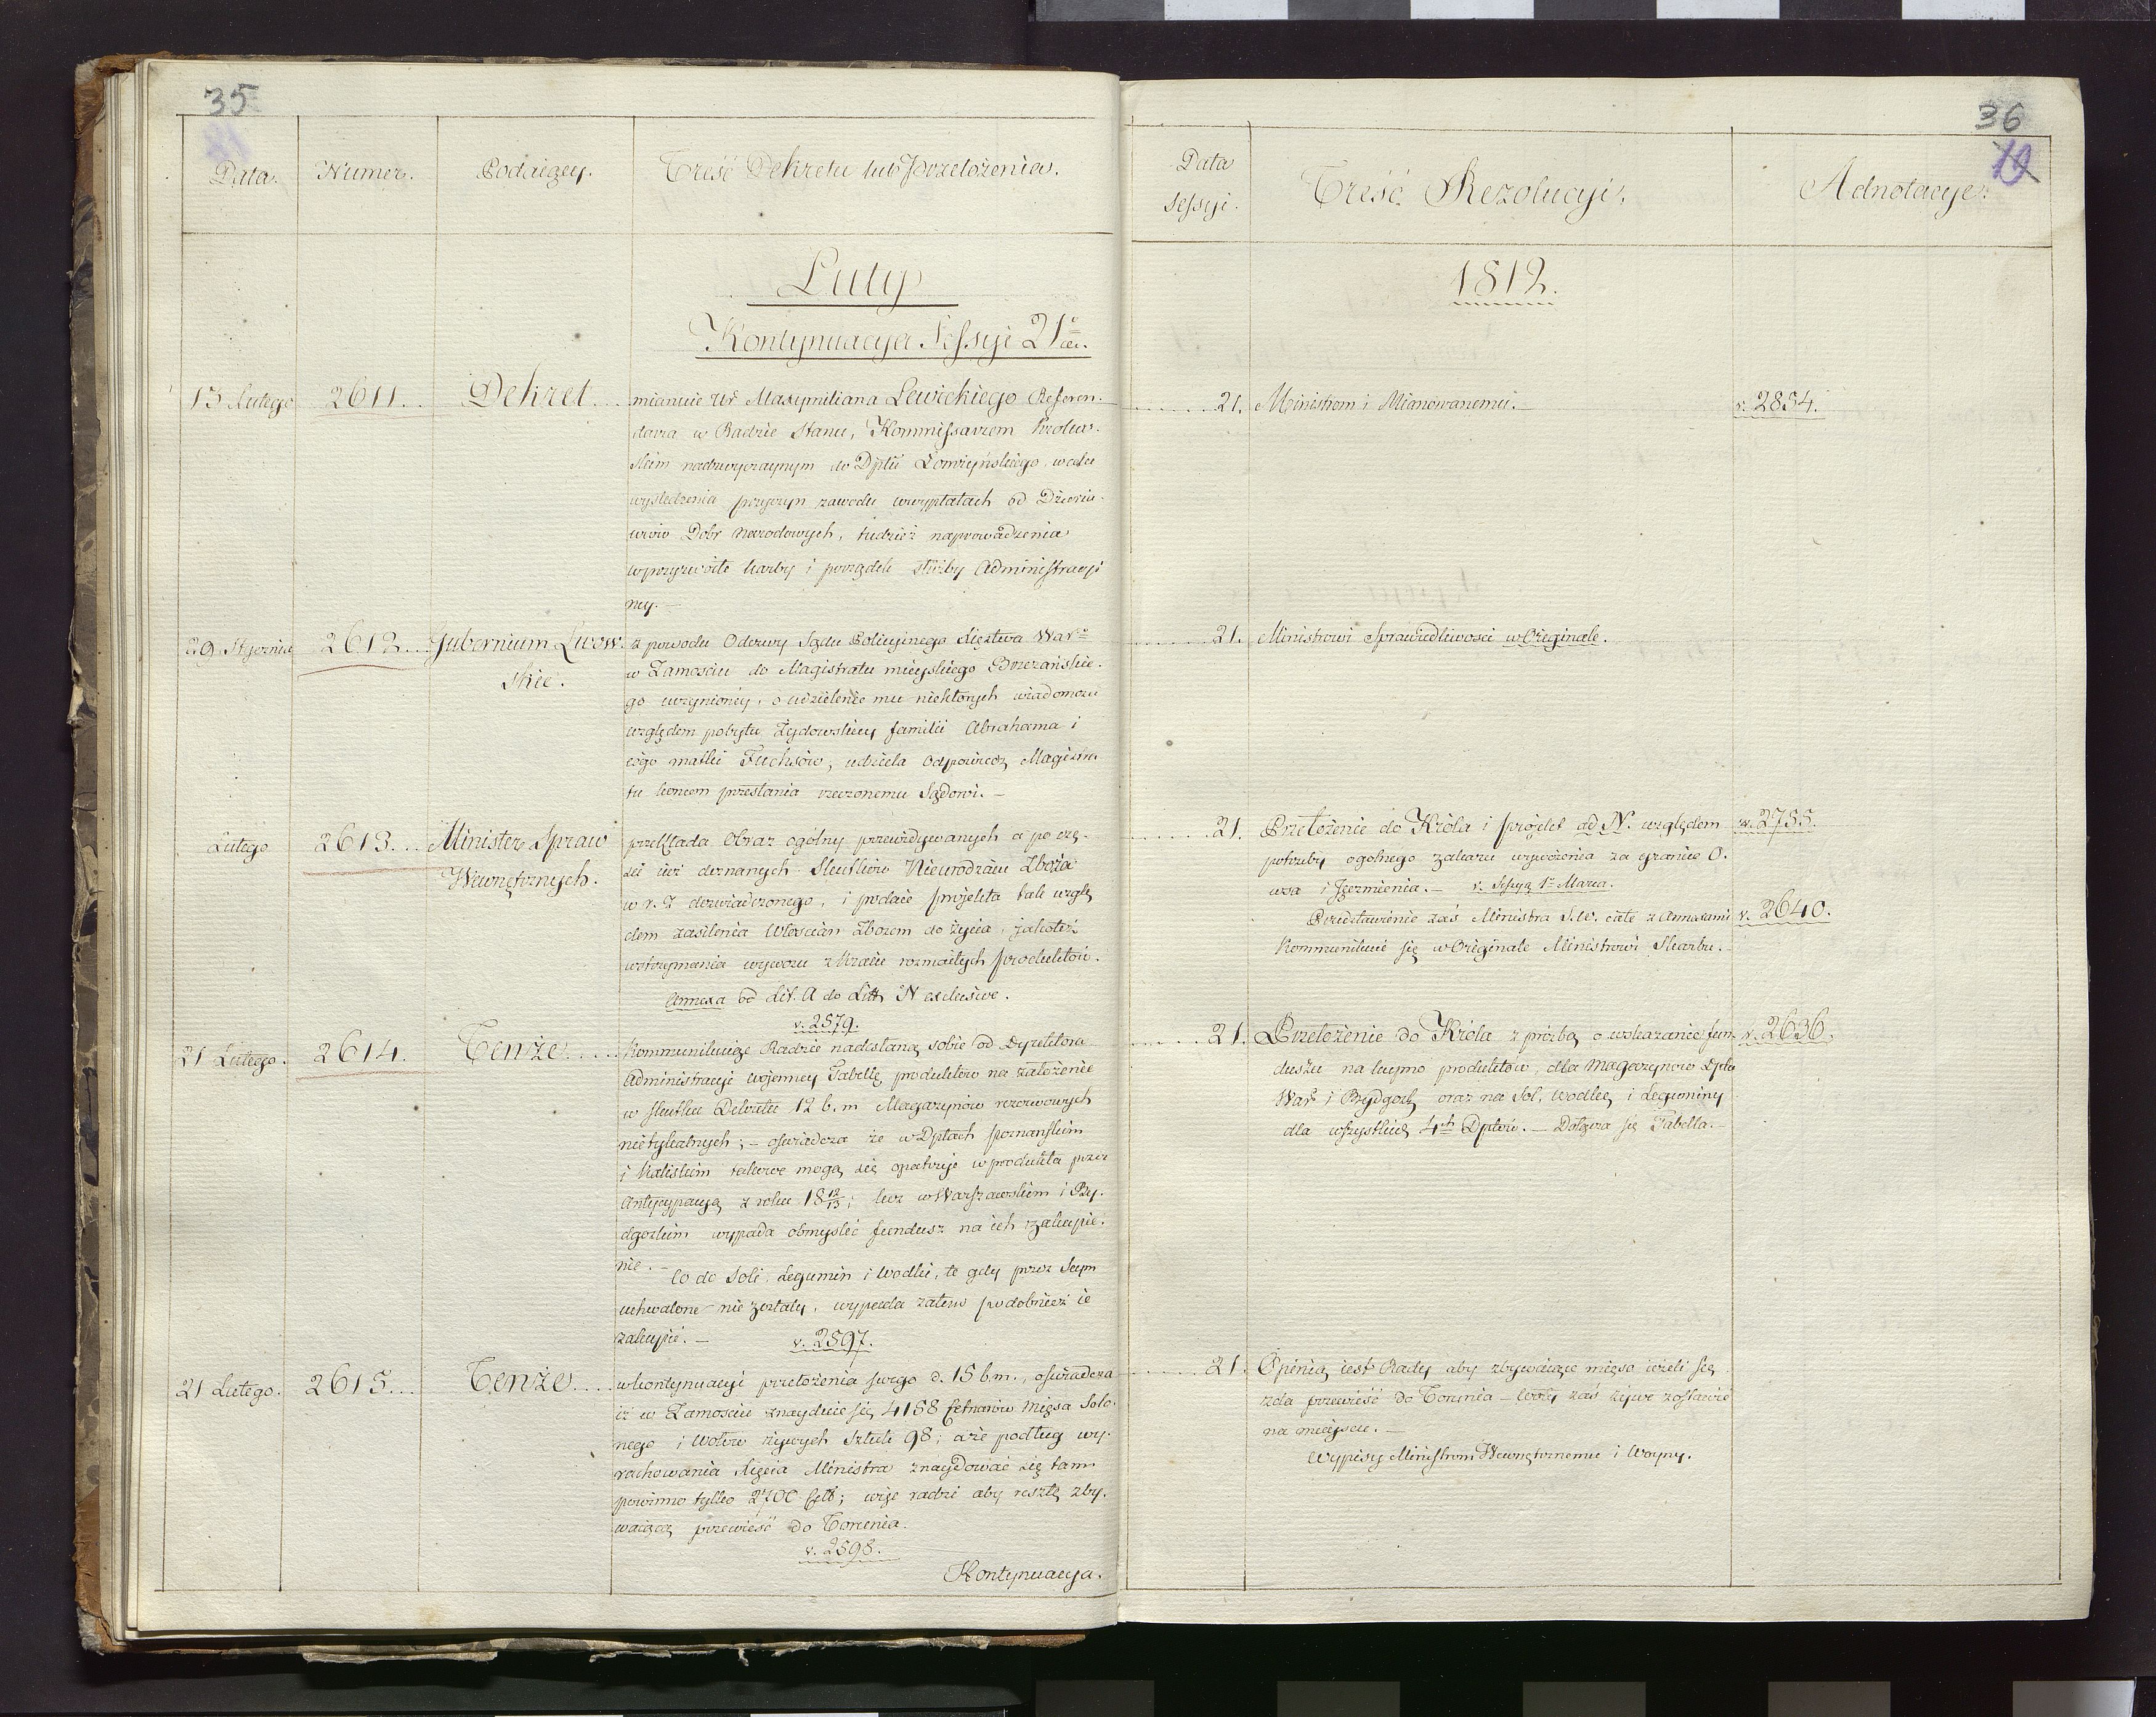 35
Data.
Numer.
Podaięcy.
Treść Dekretu lub Przełożenia.
Luty
Kontynuacya Sessyi 21
13 Lutego
2611.
Dekret
mianuie Ur Maxymiliana Lewickiego Referen-
darza w Radzie Stanu, Kommissarzem Królew-
skim nadzwyczaynym do Dptu Łomżyńskiego, w celu
wyśledzenia przyczyn zawodu w wypłatach od Dzierża-
wców Dobr Narodowych, tudzież naprowadzenia
w przyzwoite karby i porządek służby Administracyi
ney.
29 Stycznia
2612.
Gubernium Lwow-
skie.
z powodu Odezwy Sądu Policyinego Xięztwa War
w Zamościu do Magistratu mieyskiego Brzezańskie-
go uczynioney, o udzielenie mu niektorych wiadomości
względem pobytu Żydowskiey familii Abrahama i
iego matki Fuchsów, udziela odpowiedz Magistra
tu koncem przesłania rzeczonemu Sądowi. -
Lutego
2613.
Minister Spraw
Wewnętrznych.
przekłada Obraz ogólny przewidywanych a po czę-
ści iuż doznanych Skutków Nieurodzaiu Zboża
w r. z doświadczonego, i podaie projekta tak wzglę
dem zasilenia Włościan Zbożem do życia, jakoteż
wstrzymania wywozu z Kraiu rozmaitych produktów.
Annexa od Lit. A do Litt N exclusive.
v. 2579.
21 Lutego.
2614.
Tenże
Kommunikuiąc Radzie nadesłaną sobie od Dyrektora
Administracyi woienney Tabellę produktów na założenie
w skutku Dekretu 12 b. m Magazynów rezerwowych
nietykalnych; - oświadcza że w Dptach poznańskim
i Kaliskim takowe mogą się opatrzyć w produkta przez
Antycypacyą z roku 18 12/13; lecz w Warszawskim i By-
dgoskim wypada obmyślić fundusz na ich zakupie-
nie. -
Co do Soli, Legumin i Wodki, te gdy przez Seym
uchwalone nie zostały, wypada zatem podobnież ie
zakupić. -
v. 2597.
21 Lutego.
2615.
Tenże
w kontynuacyi przełożenia swego d. 15 b.m., oświadcza
iż w Zamościu znayduie się 4158 Cetnarów Mięsa Solo-
nego i Wołów żywych Sztuk 98; a że podług wy-
rachowania Xięcia Ministra znaydować się tam
powinno tylko 2700 Cetr; więc radzi aby resztę zby-
waiącą przewieść do Torunia.
v. 2598.
Kontynuacya.
36
10
Data
Sessyi.
Treść Rezolucyi.
Adnotacye.
1812.
21.
Ministrom i Mianowanemu. -
v. 2834.
21.
Ministrowi Sprawiedliwości w Originale.
21.
Przełożenie do Króla i projekt ad N. względem
potrzeby ogólnego zakazu wywożenia za granicę O-
wsa i Jęczmienia. - v. Sessyą 1 Marca.
v. 2755.
Przedstawienie zaś Ministra S.W. całe z Annexami
Kommunikuie się w Originale Ministrowi Skarbu. -
v. 2640.
21.
Przełożenie do Króla z prożbą o wskazanie fun-
duszu na kupno produktów, dla Magazynow Dptu
War i Bydgosk, oraz na Sol, Wodkę i Leguminy
dla wszystkich 4ch Dptów. - Dołącza się Tabella. -
v. 2636.
21.
Opinią iest Rady aby zbywaiące mięso ieżeli się
zda przewieść do Torunia - Woły zaś żywe zostawić
na mieyscu. -
Wypisy Ministrom Wewnętrznemu i Woyny.